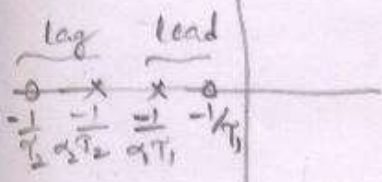 lag lead
-1/T₂ -1/α₂T₂ -1/α₁T₁ -1/T₁